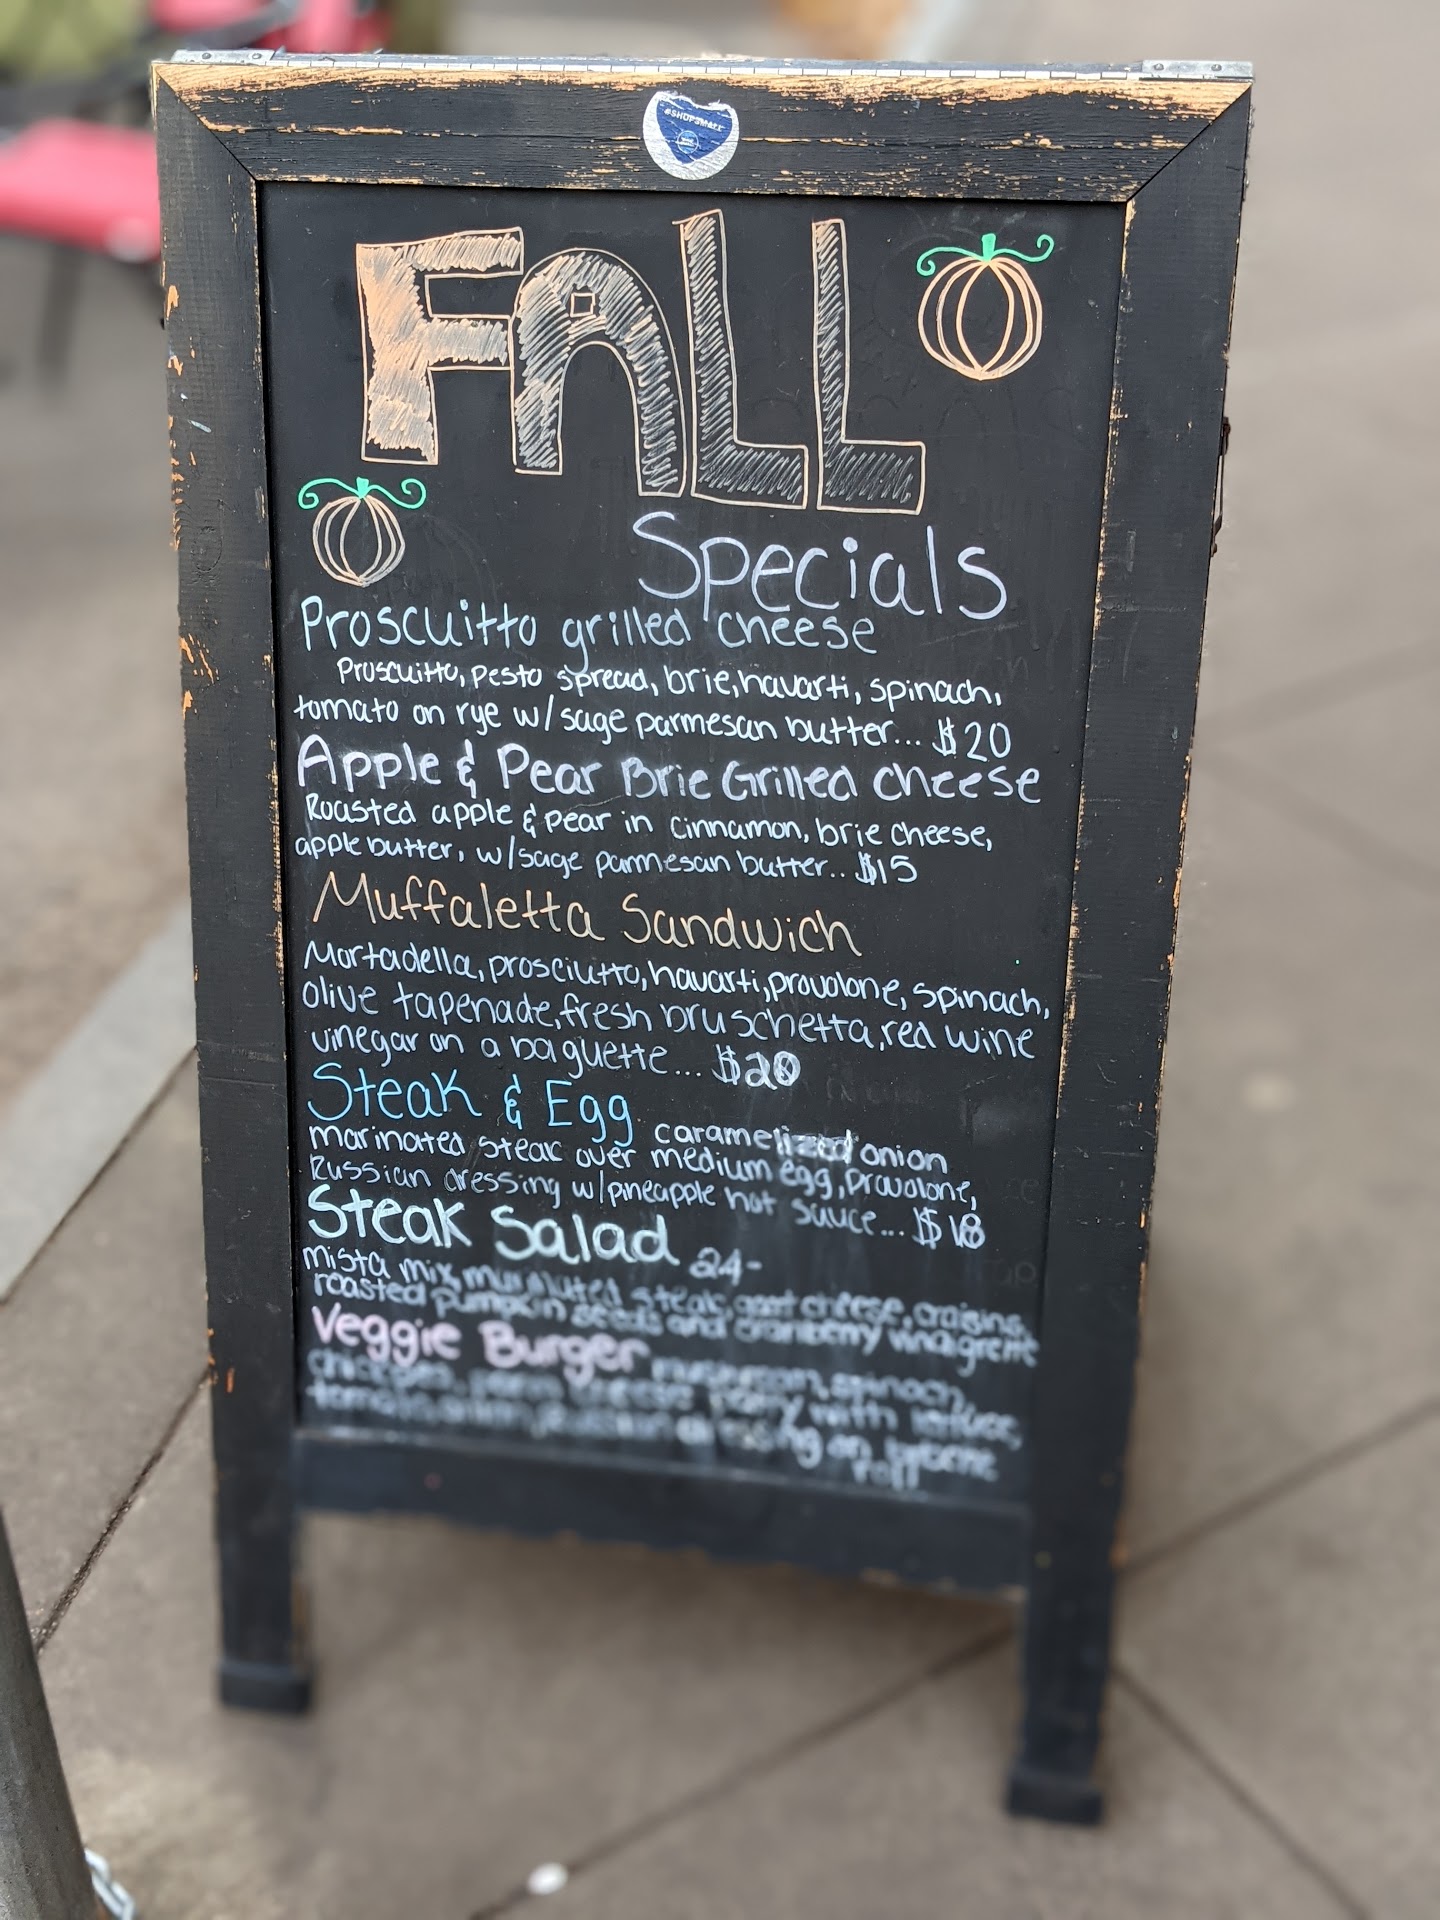 #SHOPSMALL
FALL
Specials
Proscuitto grilled cheese
Proscuitto, pesto spread, brie, havarti, spinach,
tomato on rye w/sage parmesan butter... $20
Apple & Pear Brie Grilled cheese
Roasted apple & pear in cinnamon, brie cheese,
apple butter, w/sage parmesan butter.. $15
Muffaletta Sandwich
Mortadella, prosciutto, havarti, provolone, spinach,
olive tapenade, fresh bruschetta, red wine
vinegar on a baguette... $20
Steak & Egg caramelized onion
marinated steak over medium egg, provolone,
Russian dressing w/pineapple hot sauce... $18
Steak Salad 24-
mista mix, marinated steak, goat cheese, craisins,
roasted pumpkin seeds and cranberry vinagrette
Veggie Burger mushroom, spinach,
chickpea, cheese patty with lettuce,
on brioche
roll